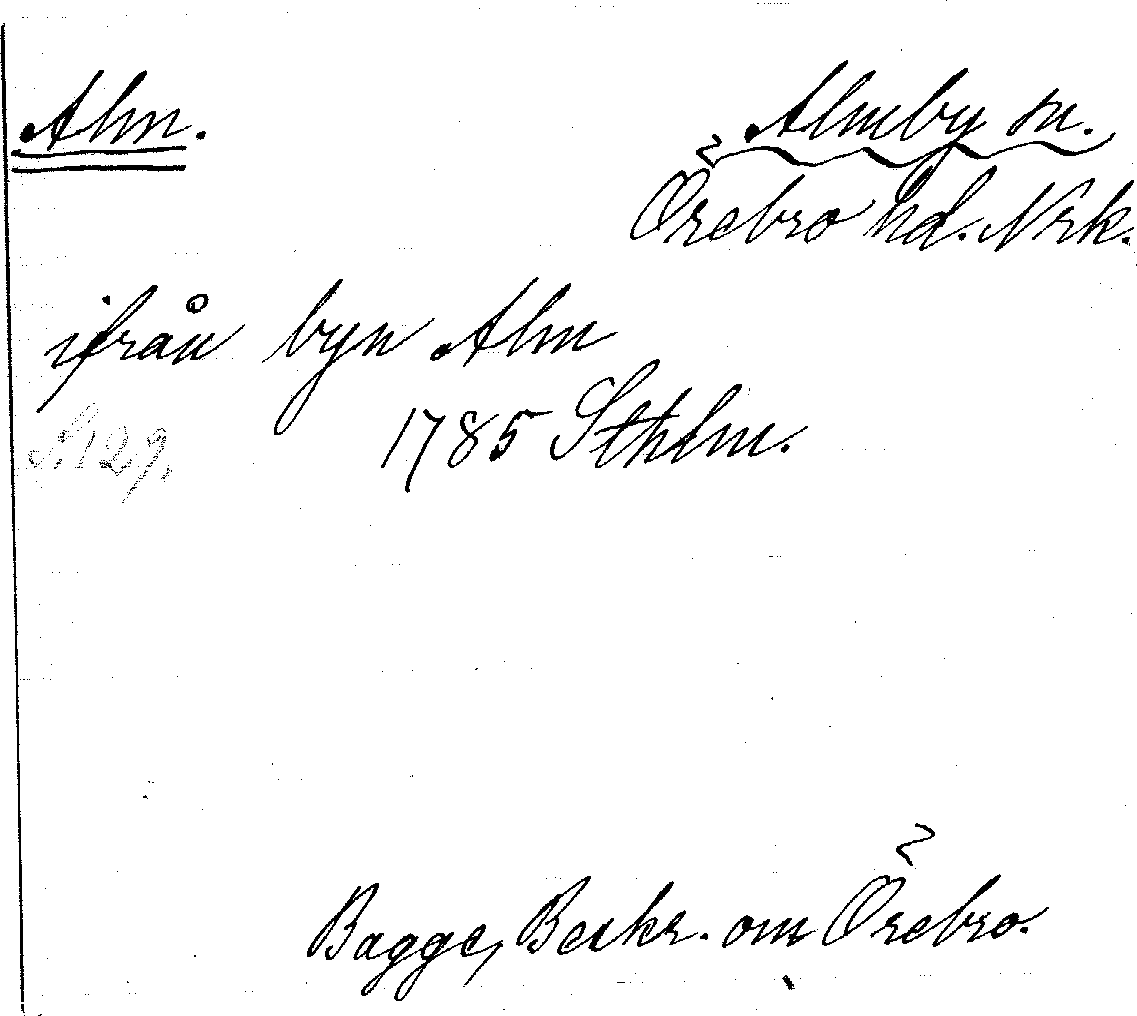 Alm.
Almby sn.
Örebro hd. Nrk.
ifrån byn Alm
1785 Sthlm.
S. 129.
Bagge, Beskr. om Örebro.